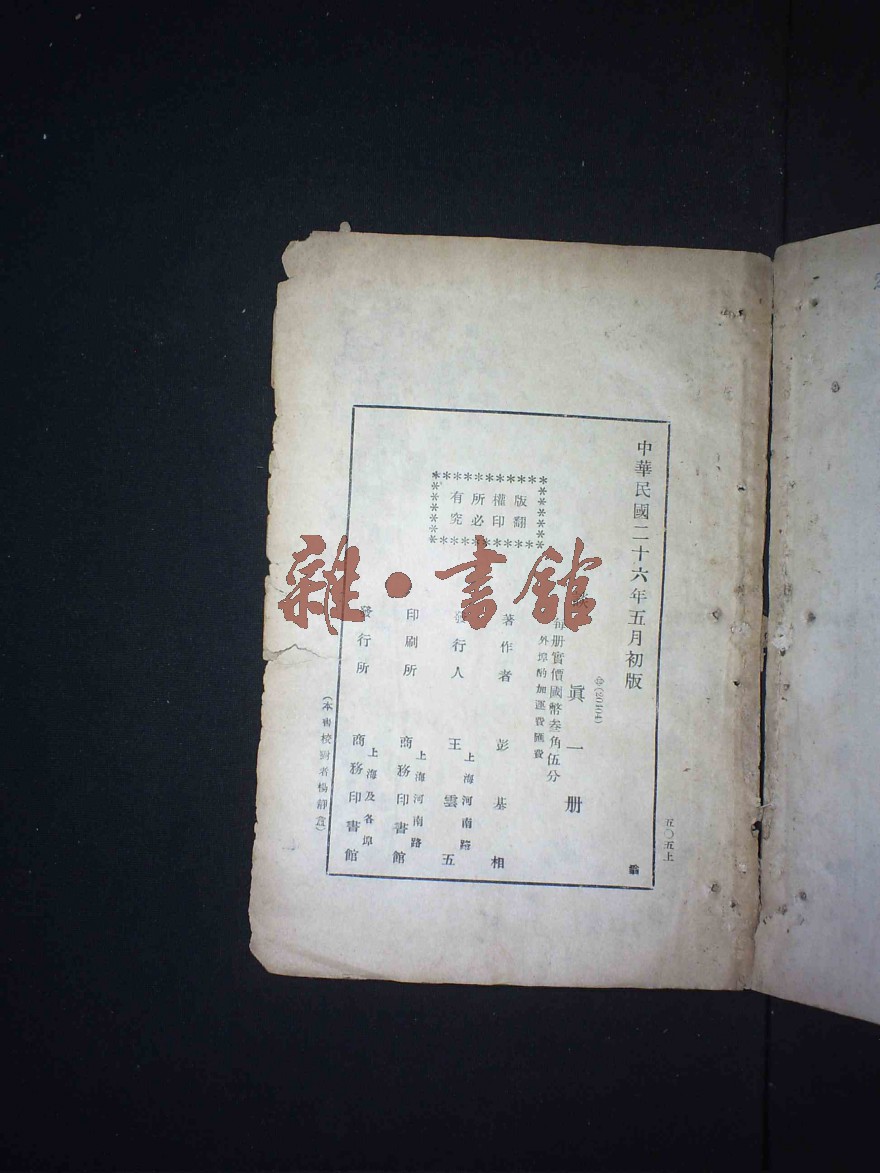 中華民國二十六年五月初版
五〇五上
(20164)
眞一册
每册實價國幣叁角伍分
外埠酌加運費匯費
版權所有
翻印必究
著作者 彭基相
發行人 王雲五
上海河南路
印刷所 商務印書館
上海河南路
發行所 商務印書館
上海及各埠
(本書校對者楊靜盦)
雜·書館